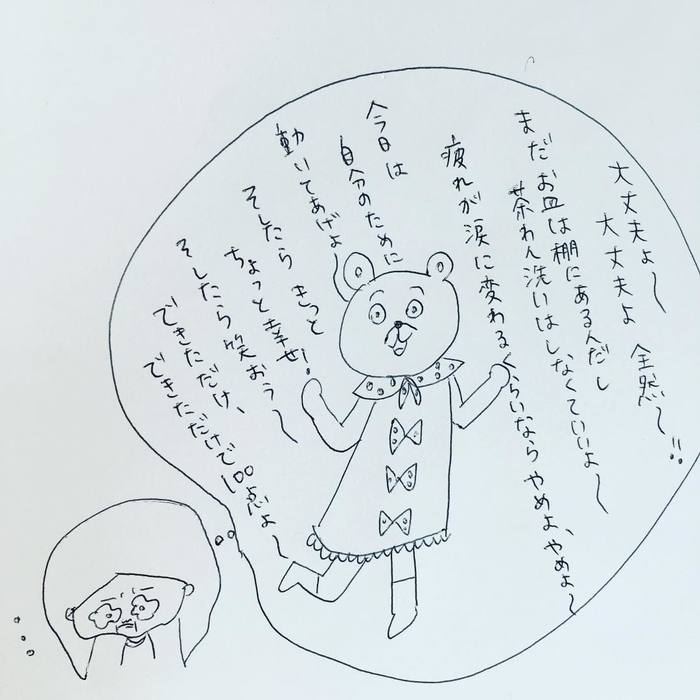 大丈夫よ〜
大丈夫よ 全然〜!!
まだお皿は棚にあるんだし
茶わん洗いはしなくていいよ〜
疲れが涙に変わるくらいなら やめよ、やめよ〜
今日は
自分のために
動いてあげよ〜
そしたら きっと
ちょっと幸せ!
そしたら笑おう〜
できただけ、
できただけで100点よ〜